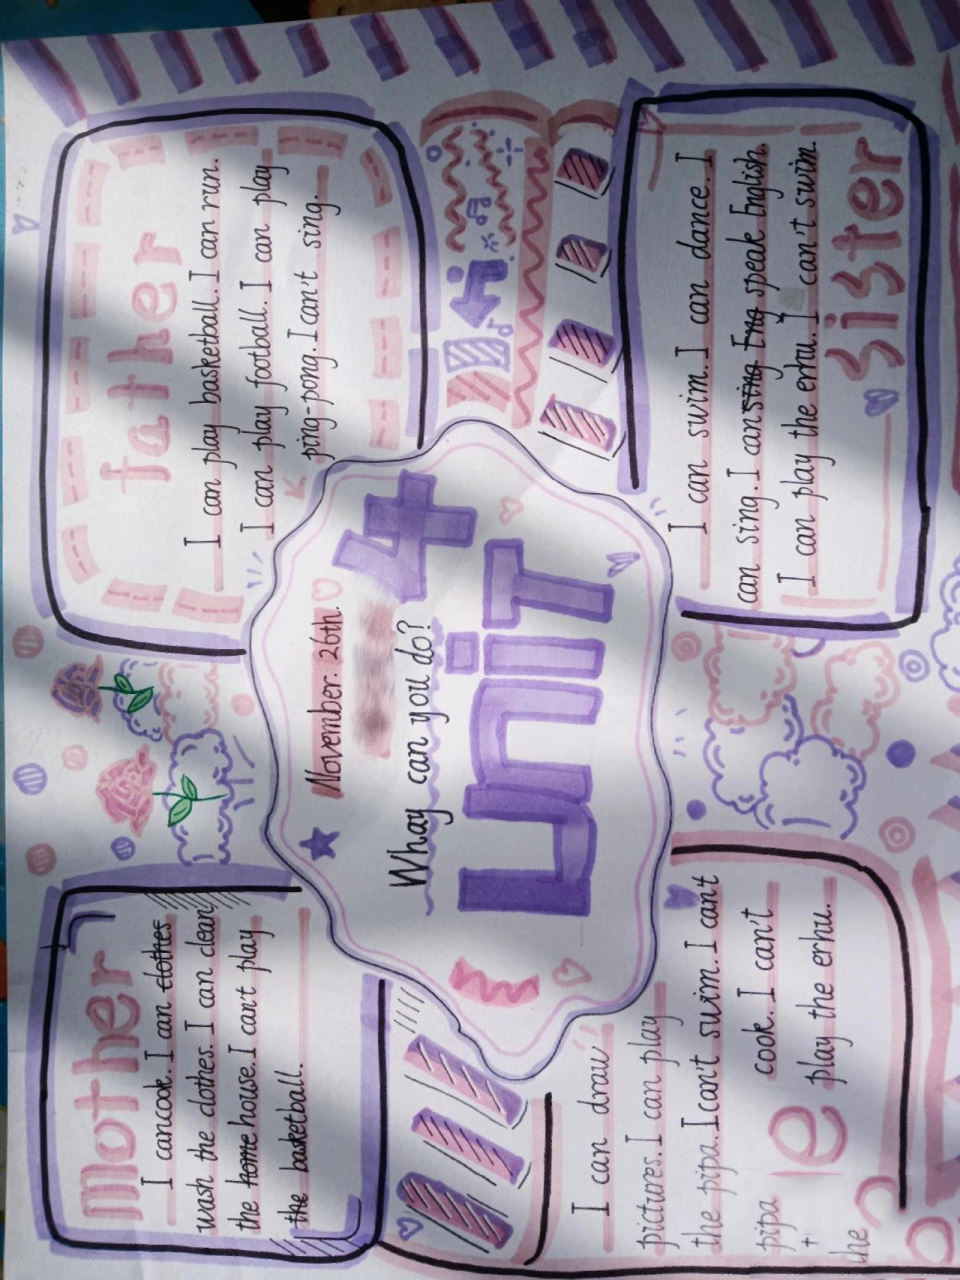 mother
I cancook. I can clothes
wash the clothes. I can clean
the home house. I can't play
the basketball.
father
I can play basketball. I can run.
I can play football. I can play
ping-pong. I can't sing.
November. 26th.
Whay can you do?
unit 4
I can draw
pictures. I can play
the pipa. I can't swim. I can't
cook. I can't
play the erhu.
pipa
the
I can swim. I can dance. I
can sing. I can sing Eng speak English.
I can play the erhu. I can't swim.
sister